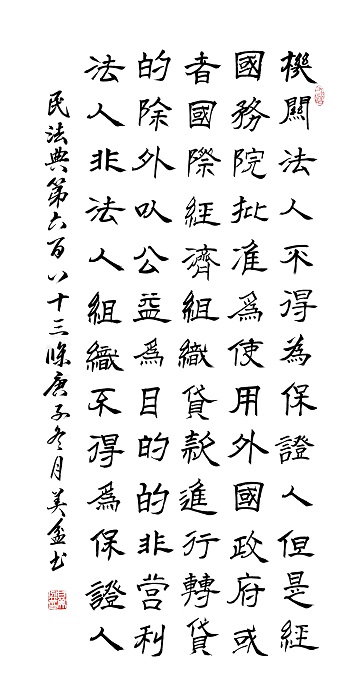 機關法人不得為保證人但是經
國務院批准爲使用外國政府或
者國際經濟組織貸款進行轉貸
的除外以公益為目的的非营利
法人非法人組織不得爲保證人
民法典第六百八十三條庚子冬月美书